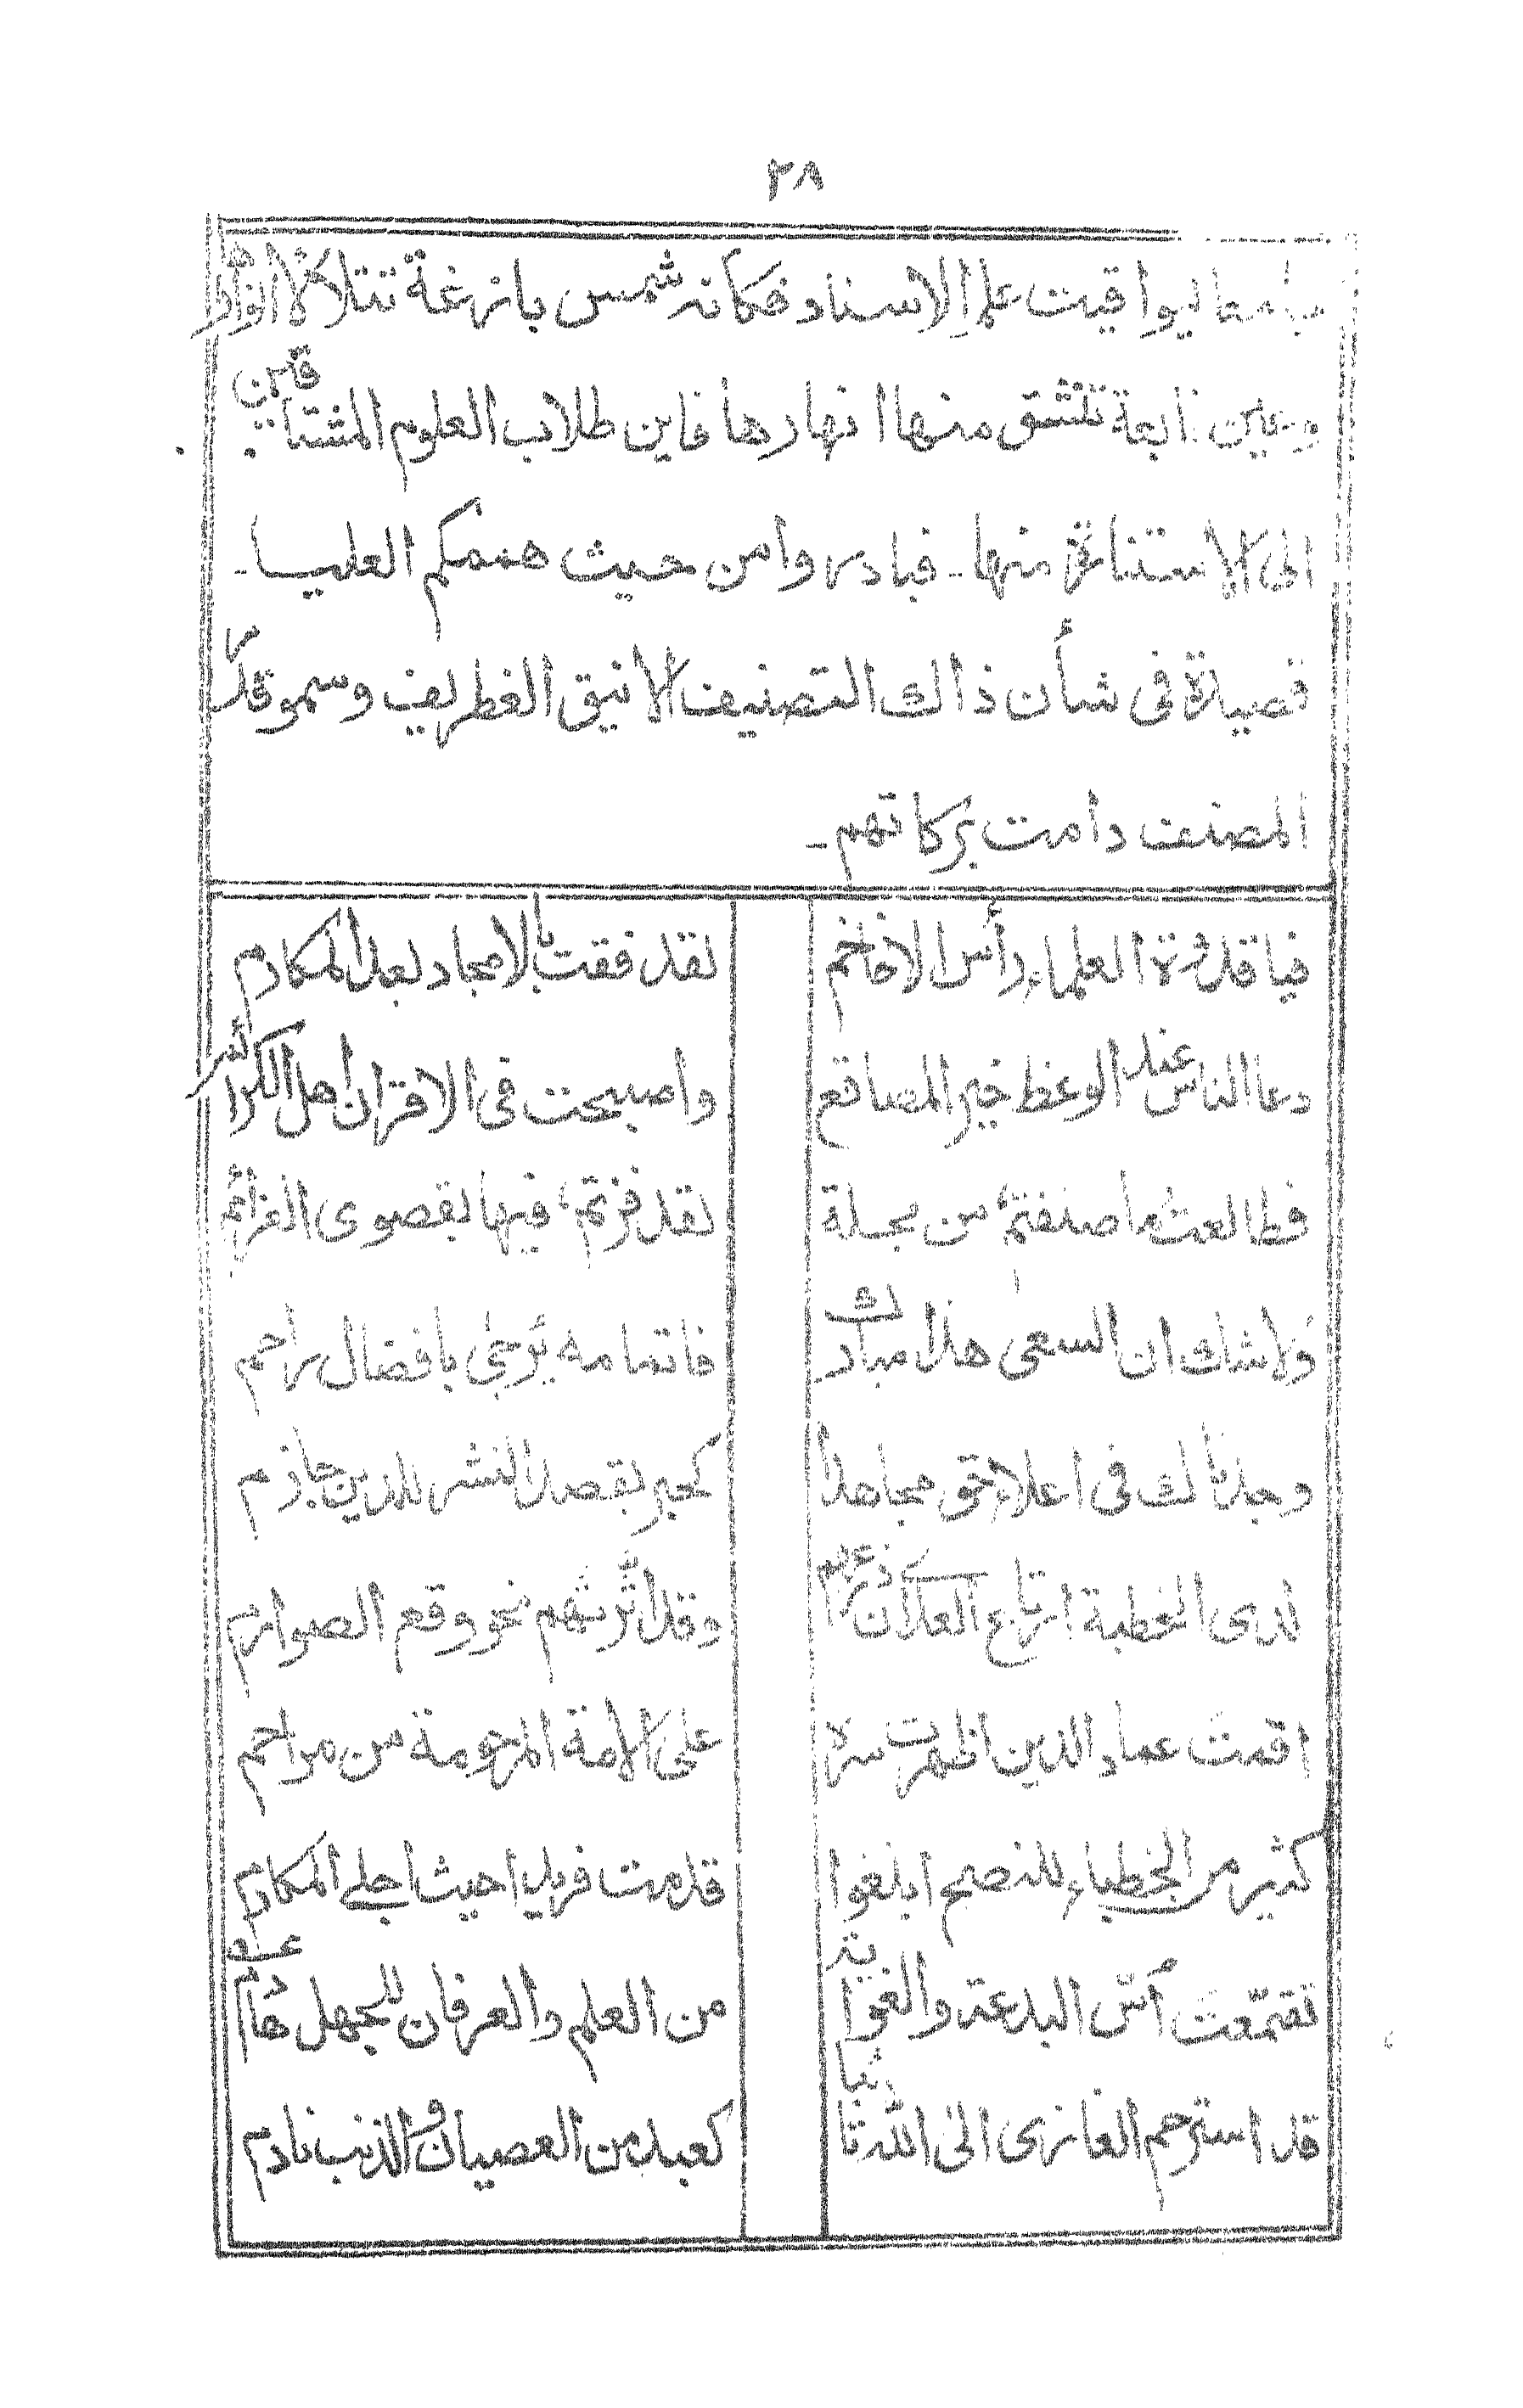 ٣٨
ليواقيت علم الاسناد فكانه شمس بازغة تتلاكأ انوارها
وعين نابعة تنشق منها انهارها فاين طلاب العلوم المشتاقين
الى الاستنارة منها ۔ فبادروا من حيث هممكم العليا ۔
قصيدة فى شأن ذالك التصنيف الانيق الغطريف وسمو قدر
المصنف دامت بركاتهم ۔
فيا قدوة العلماء رأس الافاخم لقد فقت بالامجاد بعد المكارم
دعا الناس عند الوعظ خير المصاقع واصبحت فى الاقران اهل الكرائم
فطالعت ما صنفتم من مجلة لقد فزتم فيها بقصوى العزائم
ولا شك ان السعى هذا مبارك فاتمامه يرجى بافضال راحم
وجدنالك فى اعلاء حق مجاهدا كحبر بقصد النشر للدين جازم
لدى الخطبة ارتاع العدا من وقد اثرتهم نحو وقع الصوارم
اقمت عماد الدين اظهرت سره على الامة المرحومة من مراحم
كثير من الخطباء للنصح ابلغوا قدمت فريدا حيث اجلى المكارم
تقمعت أسّ البدعة والغواية من العلم والعرفان للجهل هادم
قد استرحم الغازى الى الله تائبا كعبد من العصيان والذنب نادم